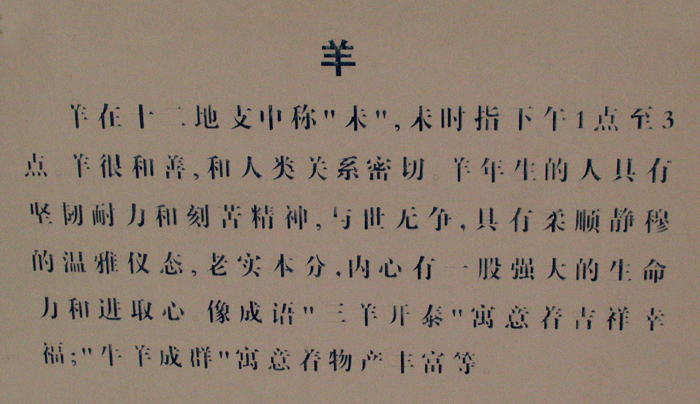 羊
羊在十二地支中称"未",未时指下午1点至3
点。羊很和善,和人类关系密切。羊年生的人具有
坚韧耐力和刻苦精神,与世无争,具有柔顺静穆
的温雅仪态,老实本分,内心有一股强大的生命
力和进取心。像成语"三羊开泰"寓意着吉祥幸
福;"牛羊成群"寓意着物产丰富等。